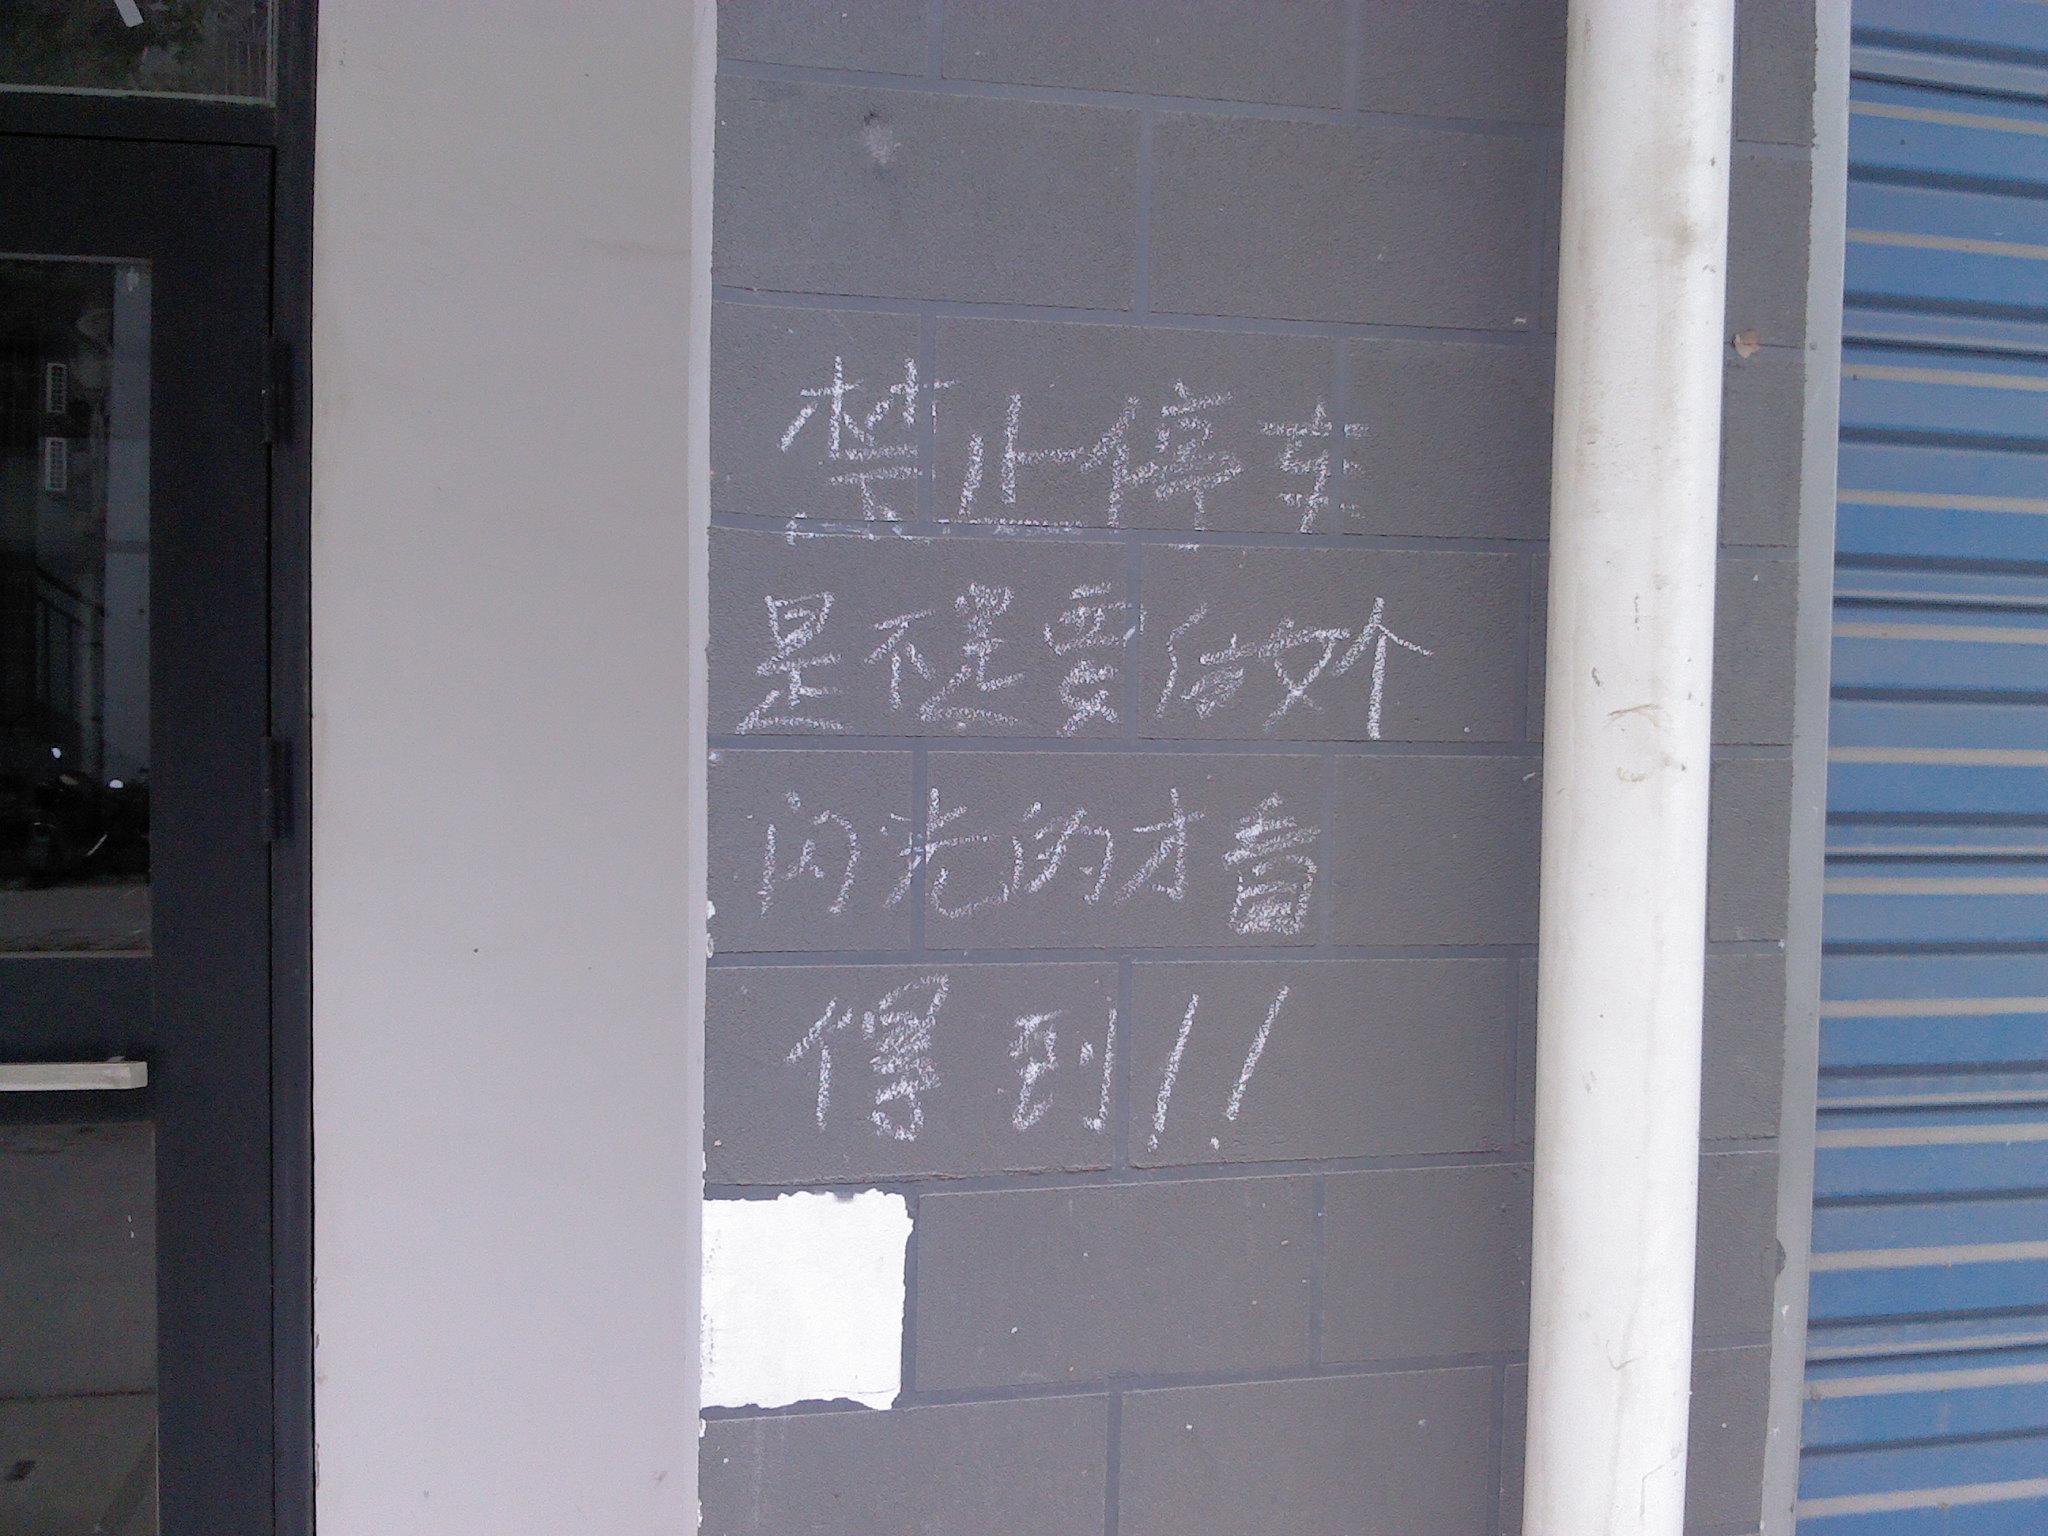 禁止停车
是不是要做个
闪光的才看
得到!!